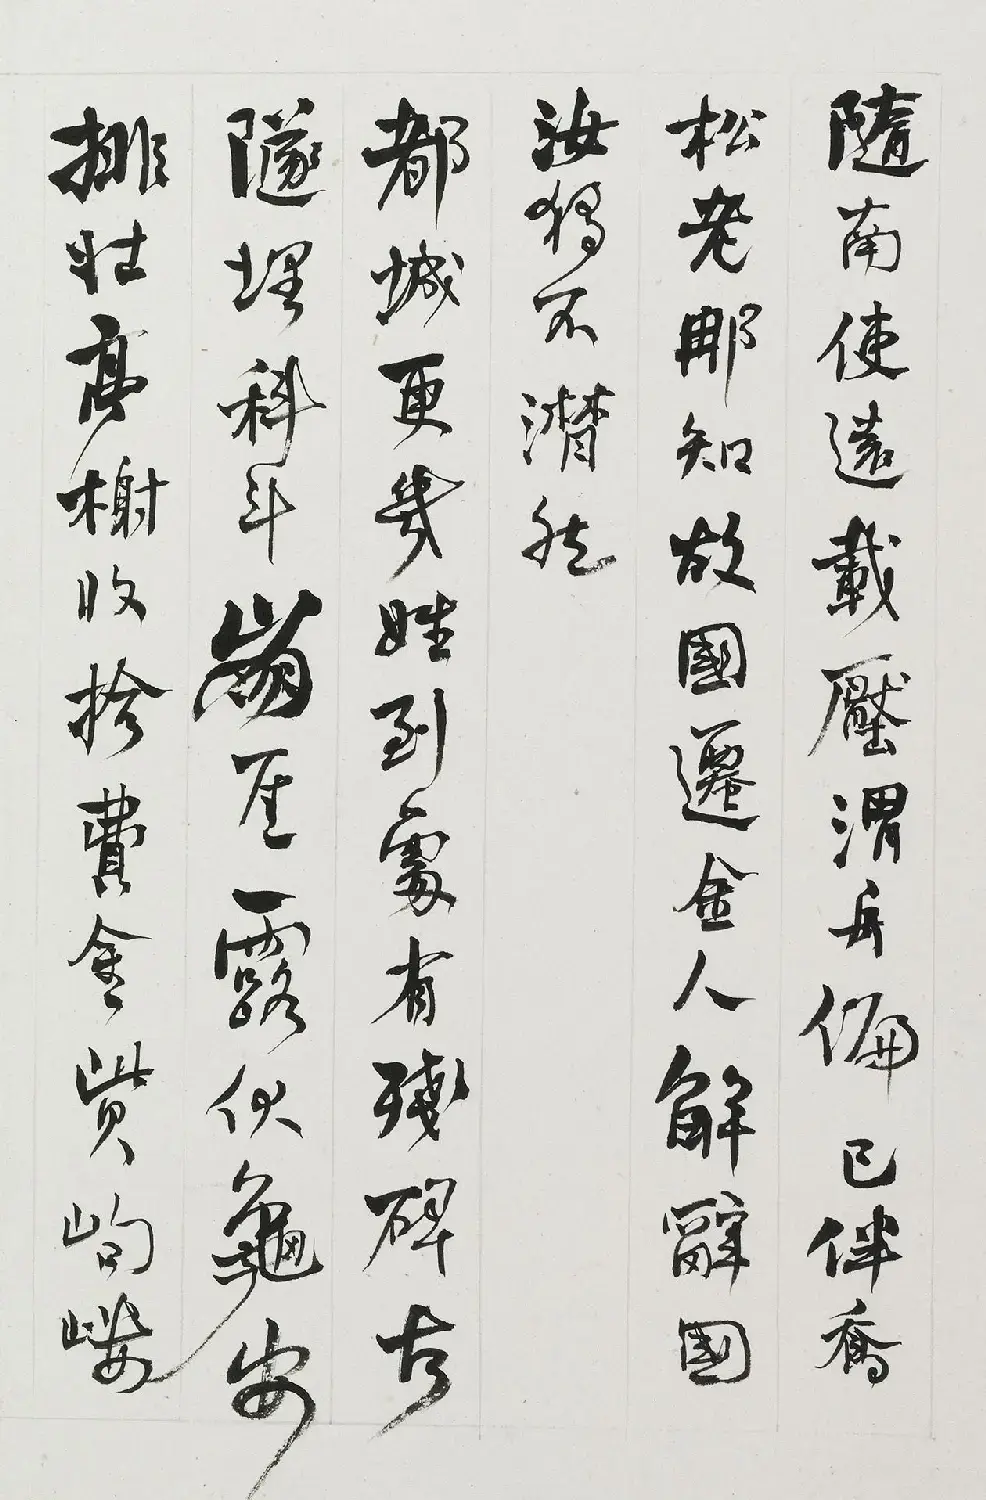 隨南使遠載壓渭舟偏已伴喬
松老那知故國遷金人解辭國
汝獨不潸然
都城更幾姓到處有殘碑古
隧埋科斗崩崖露伏龜安
排壯亭榭收拾費金貲岣嶁